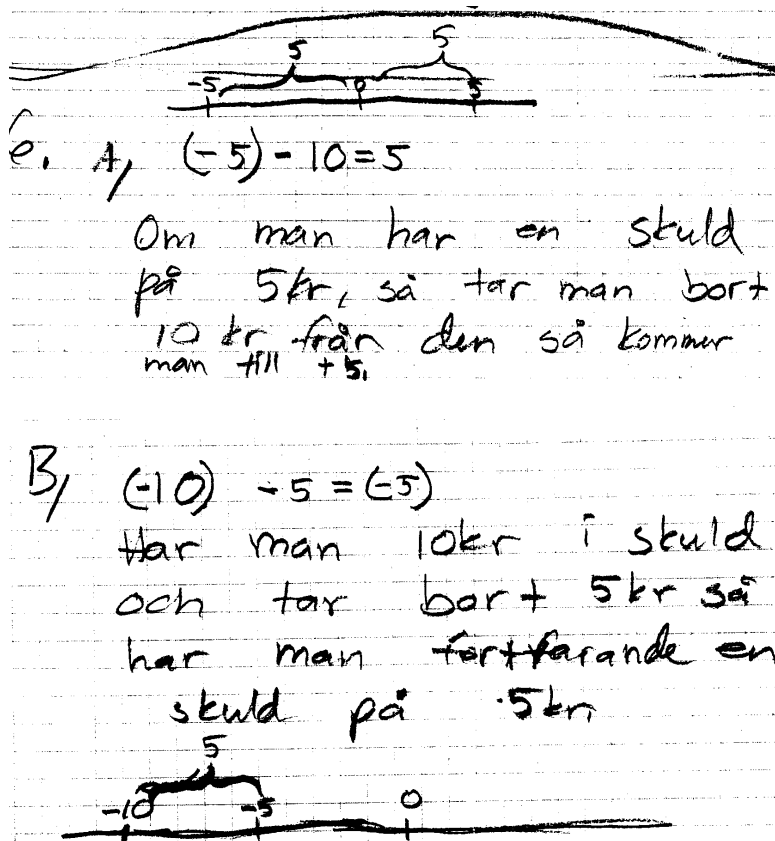 5 5
-5 0 5
6. A, (-5) - 10 = 5
Om man har en skuld
på 5kr, så tar man bort
10 kr från den så kommer
man till + 5.
B, (-10) - 5 = (-5)
Har man 10kr i skuld
och tar bort 5kr så
har man fortfarande en
skuld på 5kr
5
-10 -5 0